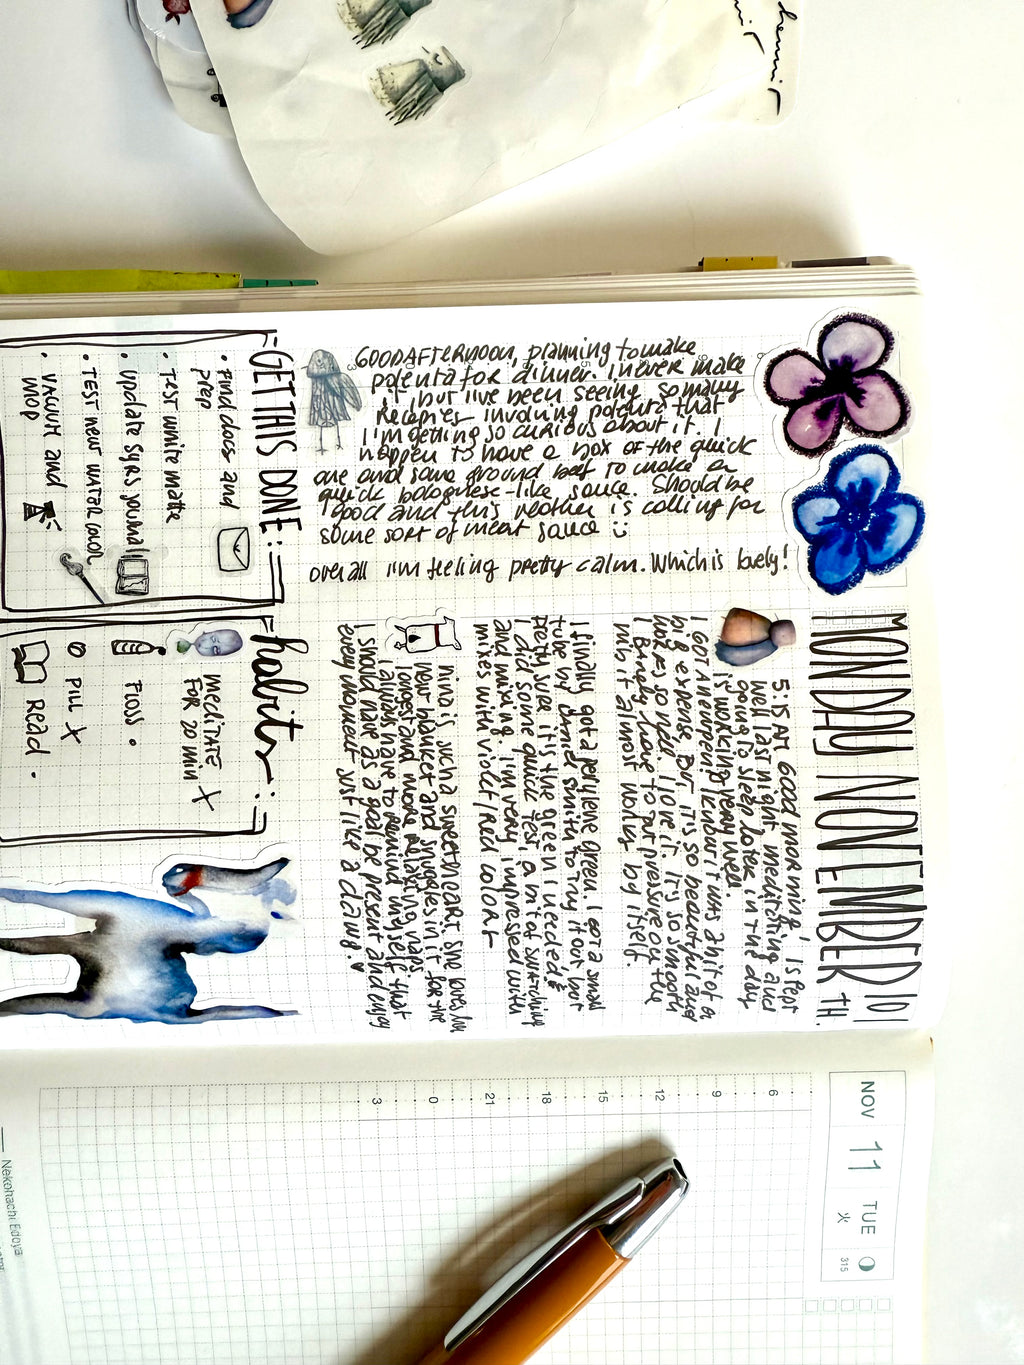 MONDAY NOVEMBER 10TH.
5:15 AM GOOD morning, I slept
well last night. meditating and
going to sleep later in the day
is working very well.
I GOT A new pen (kaküno?) it was a bit of a
big expense. But it's so beautiful and
works so well. I love it. It's so smooth
I Barely have to put pressure on the
nib it almost works by itself.
I finally got a perylene green. I got a small
tube by Daniel Smith to try it out but
pretty sure it's the green I needed!
I did some quick test, a bit of swatching
and mixing. I'm very impressed with
mixes with violet/red colors
nina is such a sweetheart. She loves her
new blanket and snuggles in it for the
longest and more relaxing naps.
I always have to remind myself that
I should have as a goal be present and enjoy
every moment just like a dawg. ♥
GOOD AFTERNOON, planning to make
polenta for dinner. I never make
it, but I've been seeing so many
Recepies involving polenta that
I'm getting so curious about it. I
happen to have a box of the quick
one and some ground beef to make a
quick bolognese-like sauce. Should be
good and this weather is calling for
some sort of meat sauce :)
overall I'm feeling pretty calm. Which is lovely!
GET THIS DONE:
• Find docs and
prep
• Test white matte
• update 5yrs journal
• TEST new water color
• vacuum and
mop
habits:
meditate
FOR 20 min X
FLOSS •
PILL X
Read •
NOV 11 TUE
火 315
6
9
12
15
18
21
0
3
Nekohachi Edoya